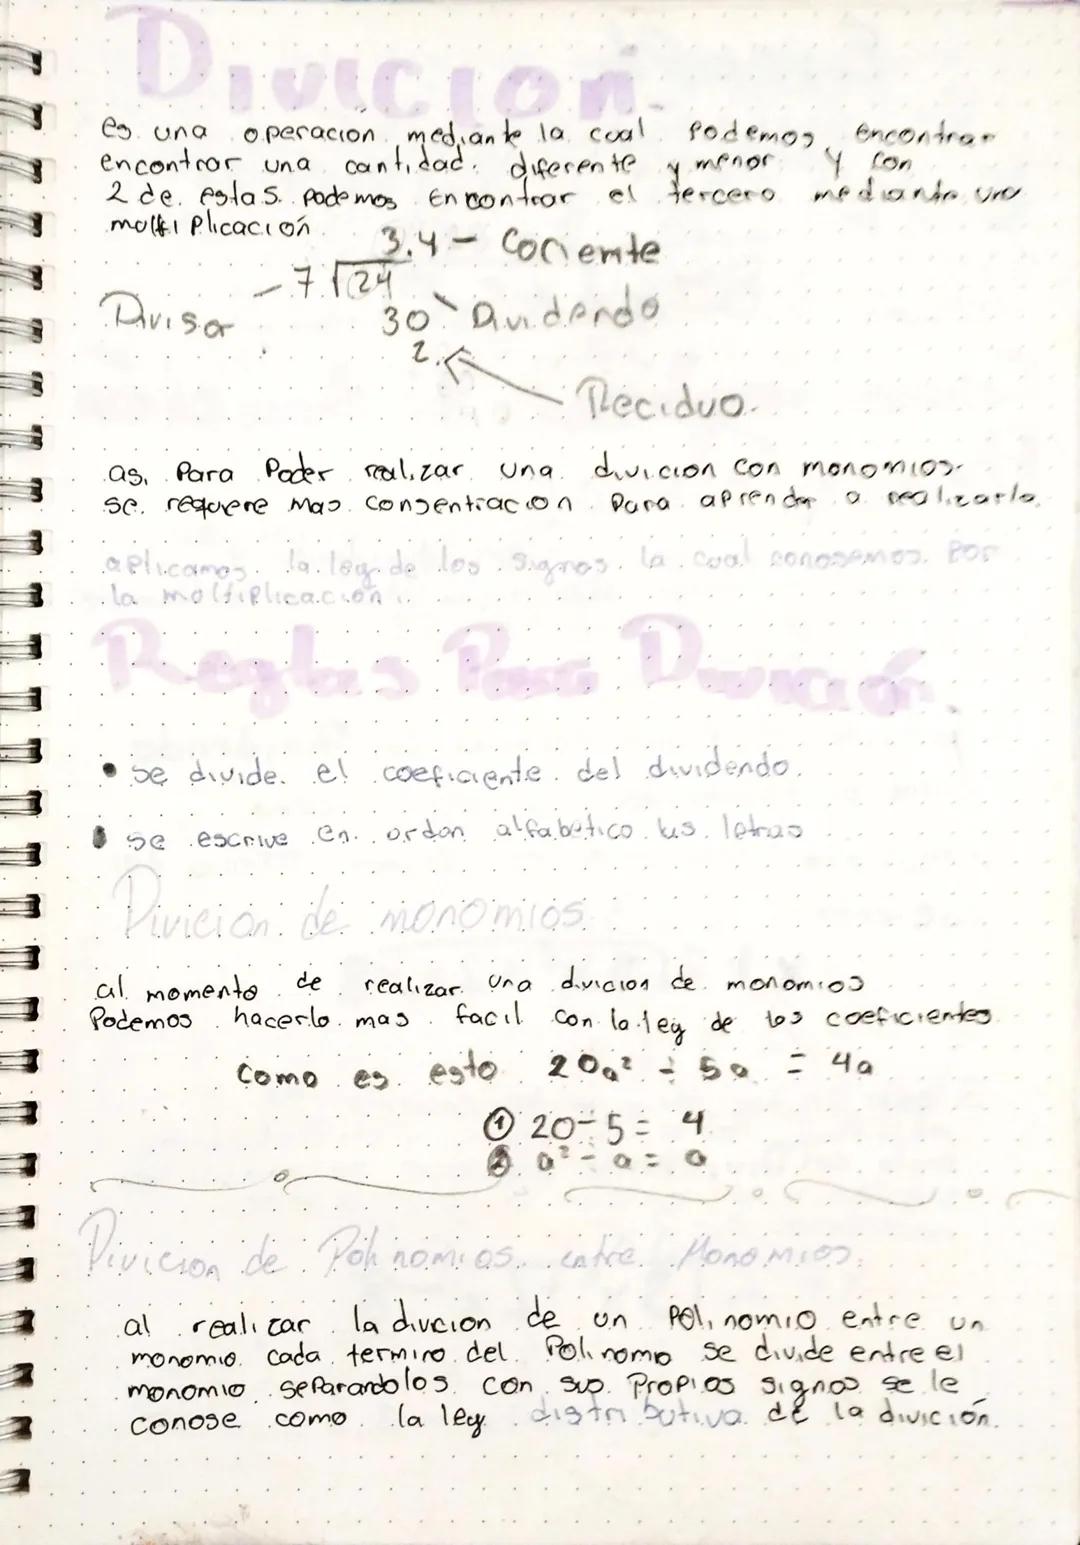 Divicion
es una operacion mediante la cual Podemos encontrar
encontrar una cantidad diferente y menor y con
2 de estas podemos Encontrar el tercero mediante una
multiplicación
3.4 - Cociente
7 √24
Divisor
30 Dividendo
2
Reciduo
asi Para Poder realizar una divicion con monomios
se requere Mas Consentracion Para aprender a realizarla
aplicamos la ley de los signos la cual conosemos por
la moltiplicacion
Reglas Para Divición
• se divide el coeficiente del dividendo.
• se escrive en orden alfabetico las letras
Divicion de monomios
al momento de realizar una divicion de monomios
Podemos hacerlo mas facil con la ley de los coeficientes
Como es esto 20a² ÷ 5a = 4a
① 20÷5= 4
② a²÷a= a
Divicion de Polinomios entre Monomios.
al realizar la divcion de un Polinomio entre un
monomio cada termino del Polinomo se divide entre el
monomio separandolos con sus Propios signos se le
conose como la ley distributiva de la divición.